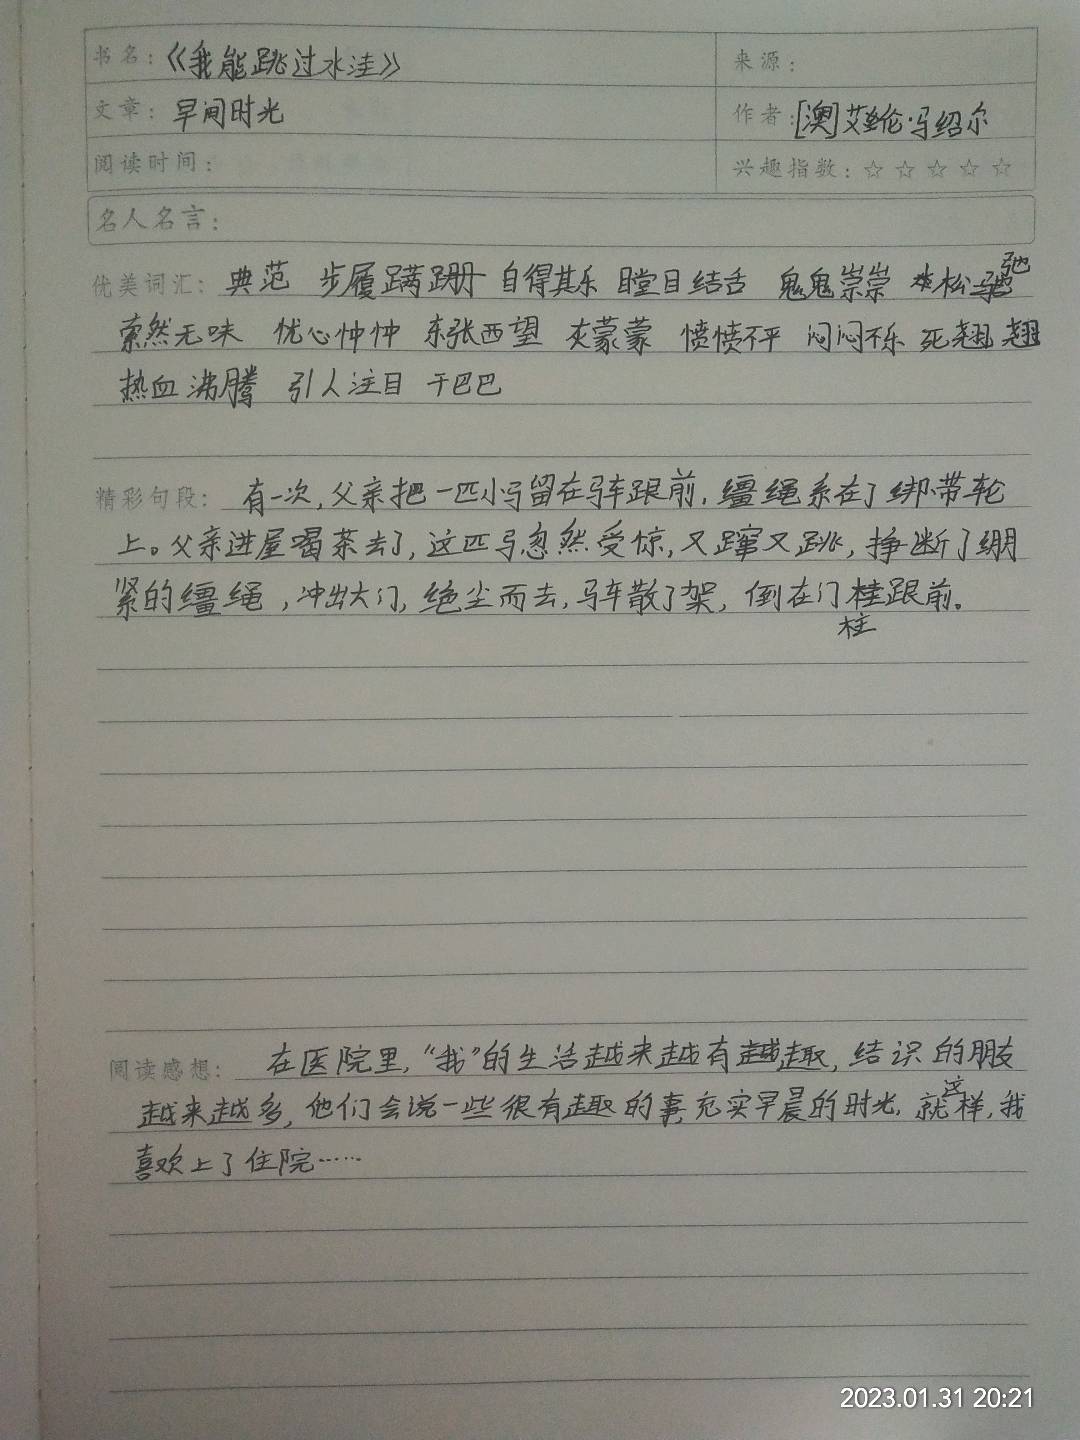 书名：《我能跳过水洼》 来源：
文章：早间时光 作者：[澳]艾伦·马绍尔
阅读时间： 兴趣指数：☆☆☆☆☆
名人名言：
优美词汇：典范 步履蹒跚 自得其乐 瞠目结舌 鬼鬼祟祟 松弛
索然无味 忧心忡忡 东张西望 灰蒙蒙 愤愤不平 闷闷不乐 死翘翘
热血沸腾 引人注目 干巴巴
精彩句段：有一次，父亲把一匹小马留在马车跟前，缰绳系在了绑带轮
上。父亲进屋喝茶去了，这匹马忽然受惊，又蹿又跳，挣断了绷
紧的缰绳，冲出大门，绝尘而去，马车散了架，倒在门桂跟前。
柱
阅读感想：在医院里，“我”的生活越来越有趣，结识的朋友
越来越多，他们会说一些很有趣的事，充实早晨的时光，就这样，我
喜欢上了住院……
2023.01.31 20:21